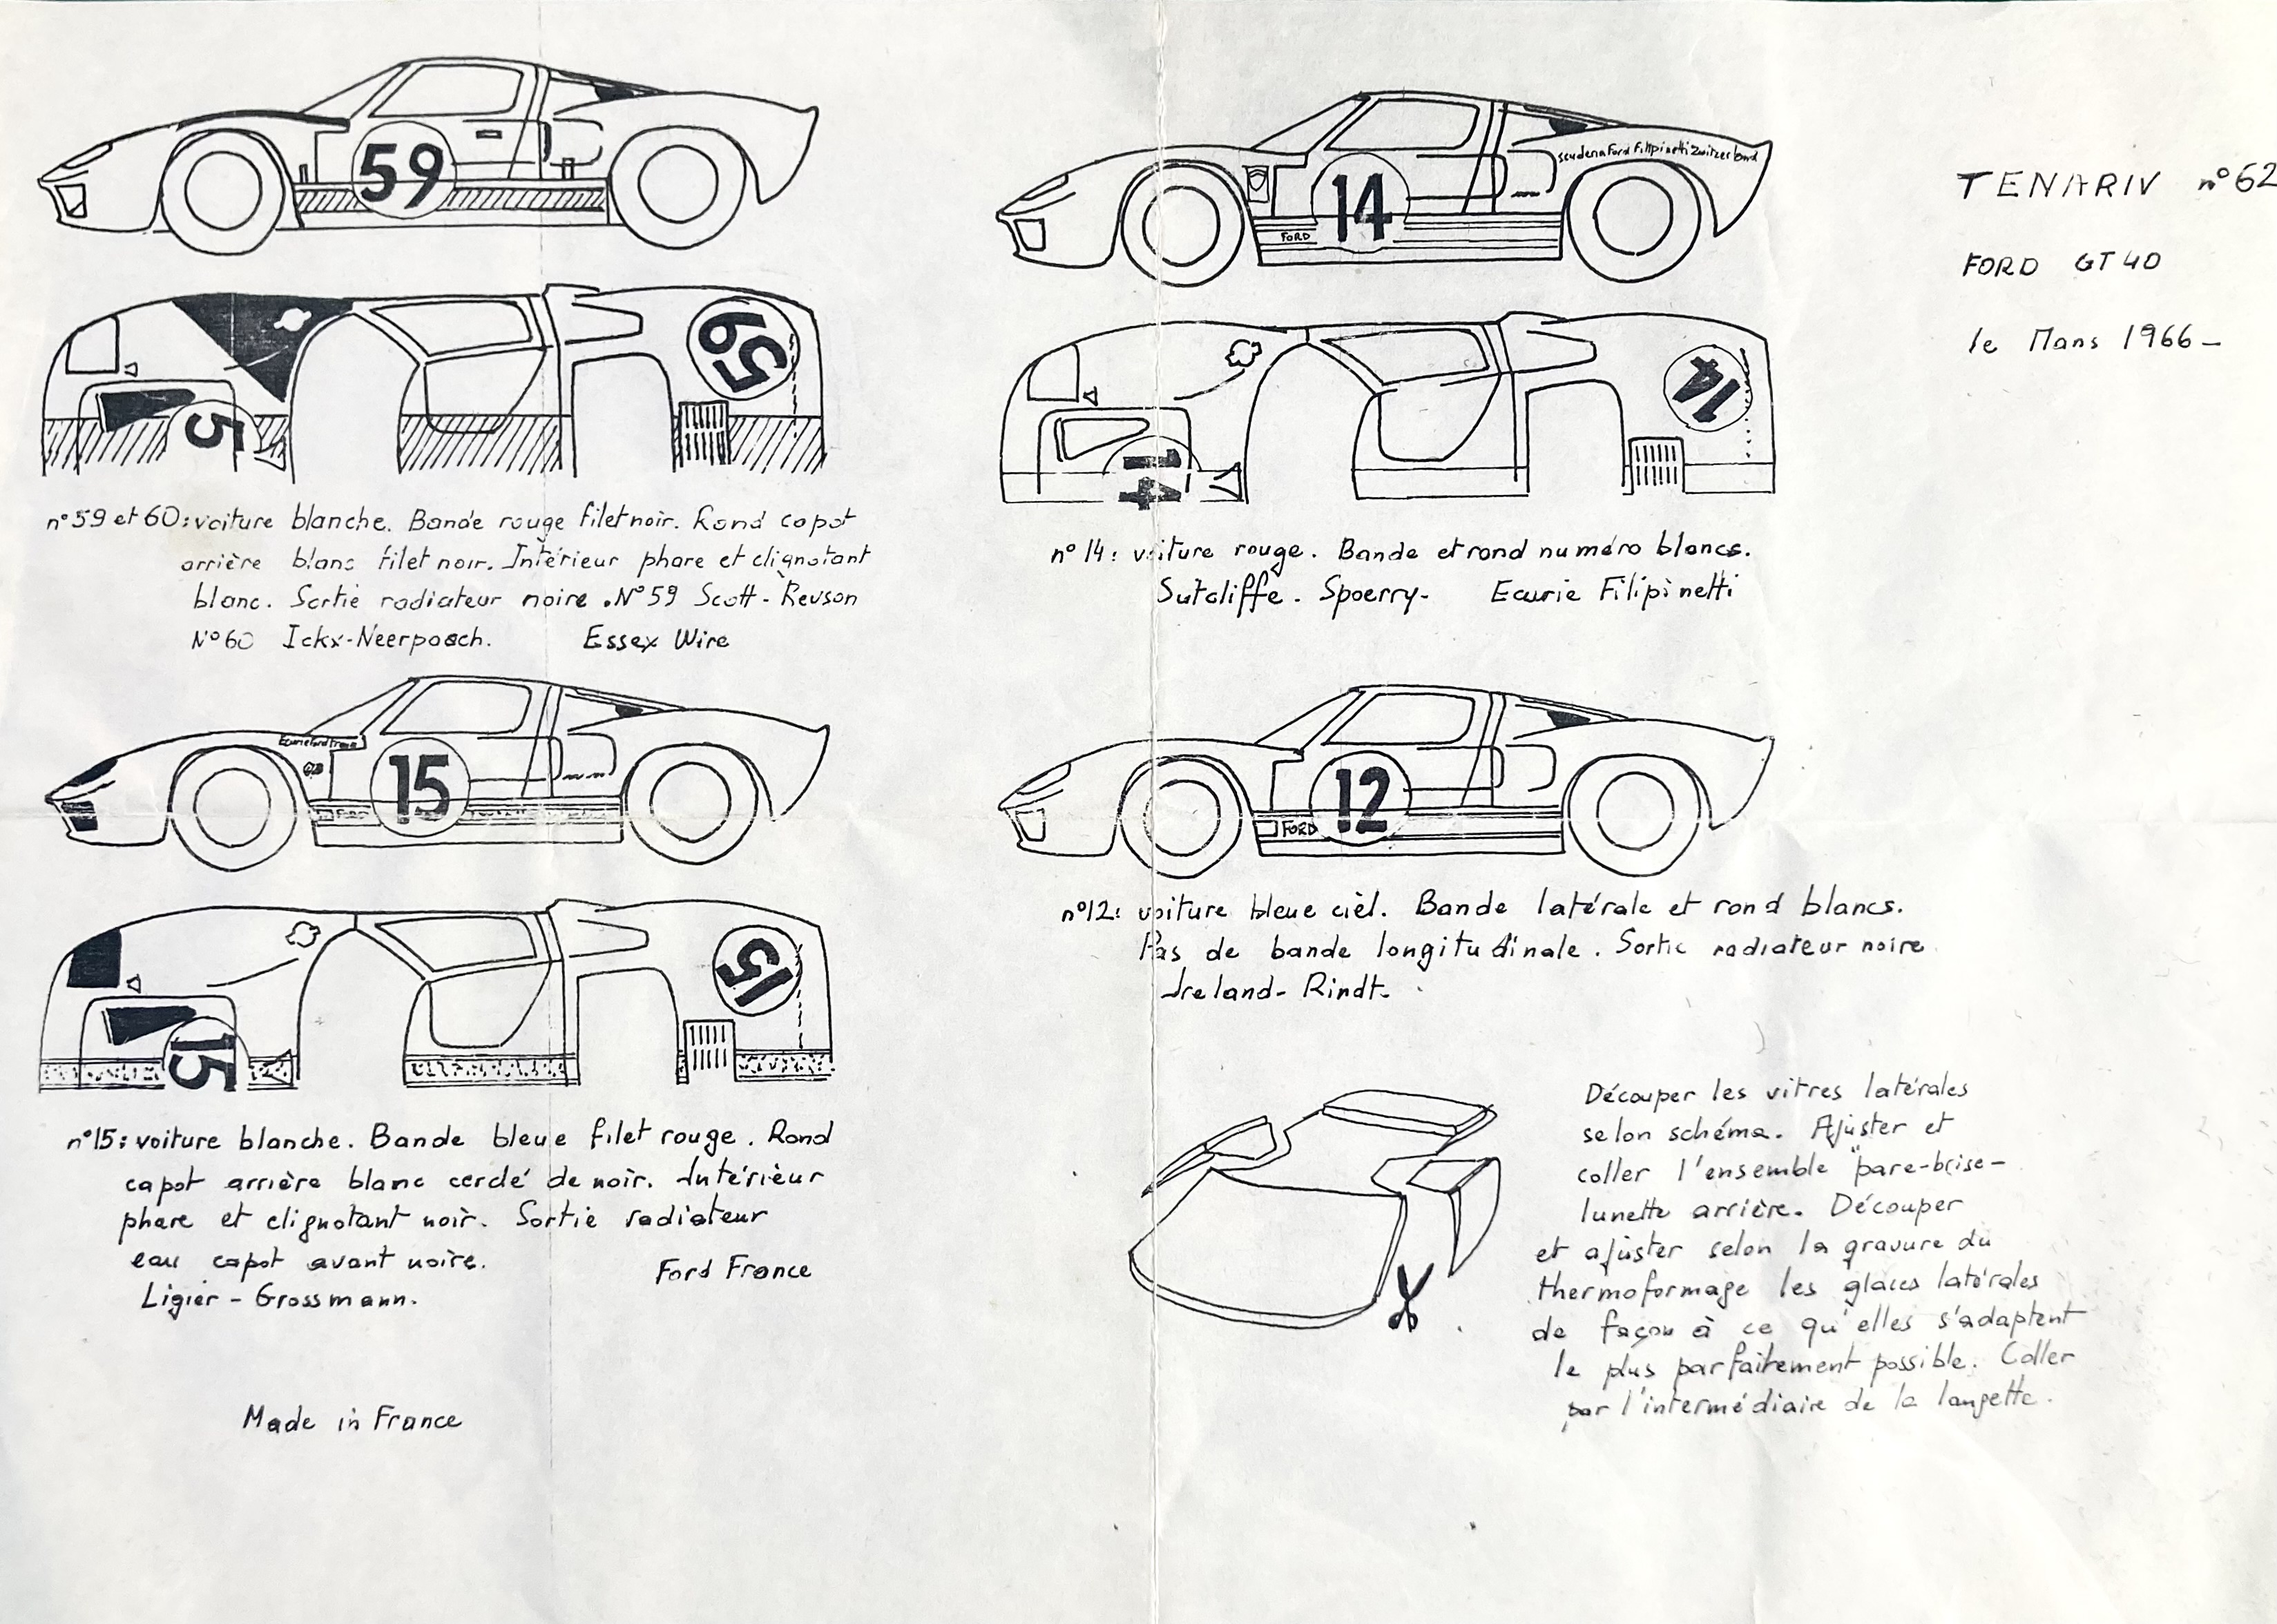 59
59
5
n°59 et 60: voiture blanche. Bande rouge filet noir. Rond capot
arrière blanc filet noir. Intérieur phare et clignotant
blanc. Sortie radiateur noire. N°59 Scott-Revson
N°60 Ickx-Neerpasch. Essex Wire
15
15
15
n°15: voiture blanche. Bande bleue filet rouge. Rond
capot arrière blanc cerclé de noir. Intérieur
phare et clignotant noir. Sortie radiateur
eau capot avant noire.
Ford France
Ligier - Grossmann.
Made in France
14
FORD
14
14
n°14: voiture rouge. Bande et rond numéro blancs.
Sutcliffe. Spoerry- Ecurie Filipinetti
12
FORD
n°12: voiture bleue ciel. Bande latérale et rond blancs.
Pas de bande longitudinale. Sortie radiateur noire
Ireland- Rindt.
Découper les vitres latérales
selon schéma. Ajuster et
coller l'ensemble "pare-brise-
lunette arrière. Découper
et ajuster selon la gravure du
thermoformage les glaces latérales
de façon à ce qu'elles s'adaptent
le plus parfaitement possible. Coller
par l'intermédiaire de la languette.
TENARIV n°62
FORD GT 40
le Mans 1966-